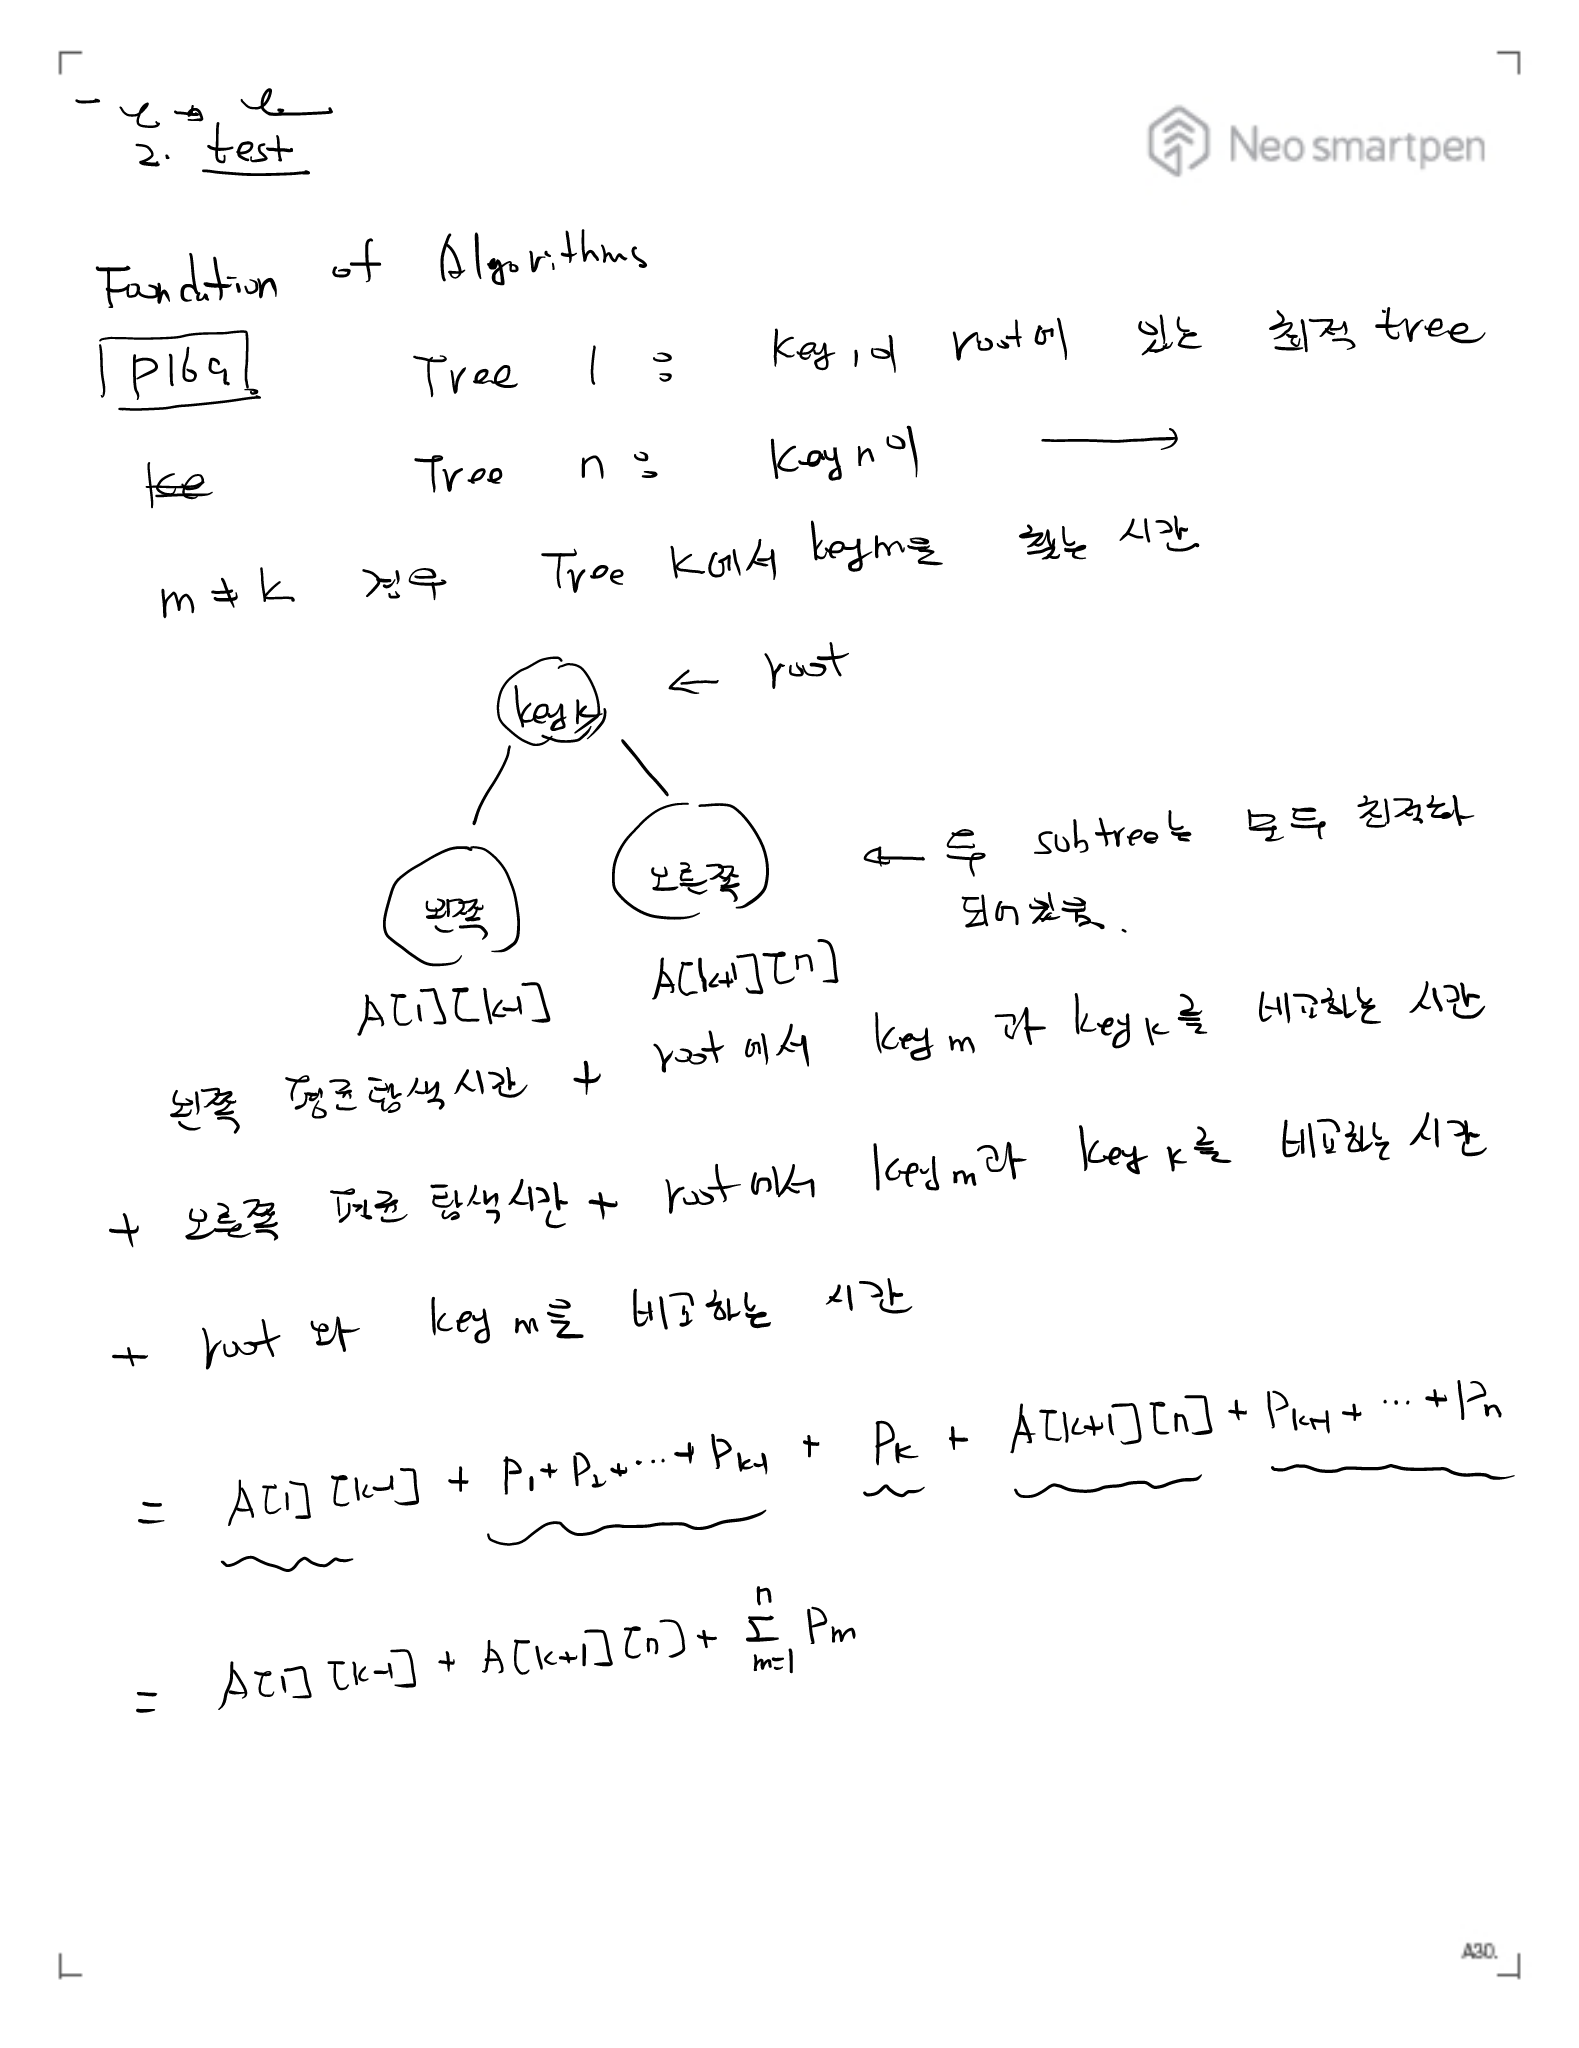 2. test
Neo smartpen
Foundation of Algorithms
P169. Tree 1 : key 1이 root에 있는 최적 tree
ke Tree n : key n이 →
m ≠ k 경우 Tree k에서 key m을 찾는 시간
key k ← root
왼쪽 오른쪽 ← 두 subtree는 모두 최적화
되어있음.
A[1][k-1] A[k+1][n]
왼쪽 평균탐색시간 + root에서 key m과 key k를 비교하는 시간
+ 오른쪽 평균 탐색시간 + root에서 key m과 key k를 비교하는 시간
+ root와 key m을 비교하는 시간
= A[1][k-1] + P₁ + P₂ + ... + Pk-1 + Pk + A[k+1][n] + Pk+1 + ... + Pn
= A[1][k-1] + A[k+1][n] + n∑m=1 Pm
A30.